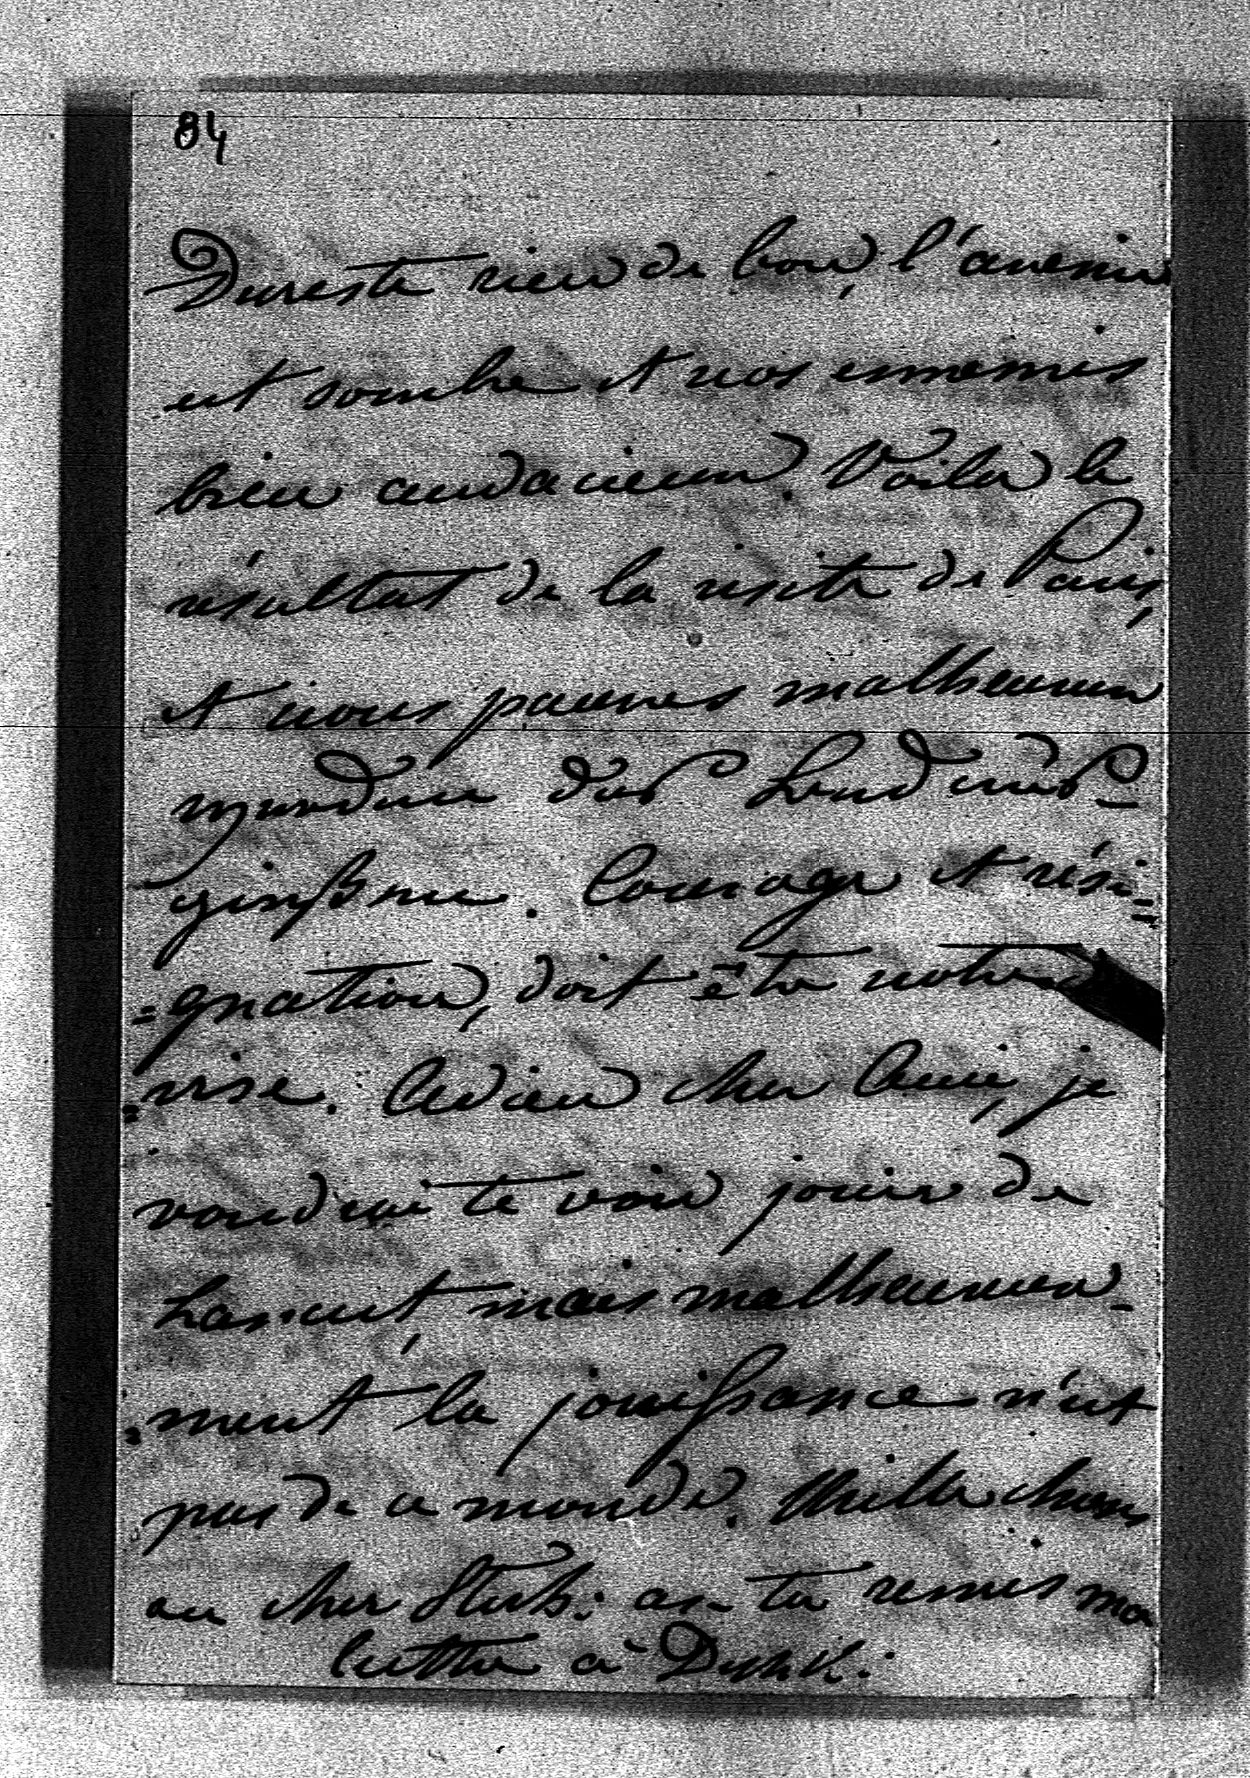 84
Du reste rien de bon, l'avenir
est sombre et nos ennemis
bien audacieux. Voila le
résultat de la visite de Paris,
et nous pauvres malheureux
das
. Courage et rési=
=gnation, doit être notre de
=vise. Adieu cher Ami, je
voudrai te voir jouir de
Lancut mais malheureuse-
=ment la jouissance n'est
pas de ce monde. Mille choses
au cher Stub: as-tu remis ma
lettre à